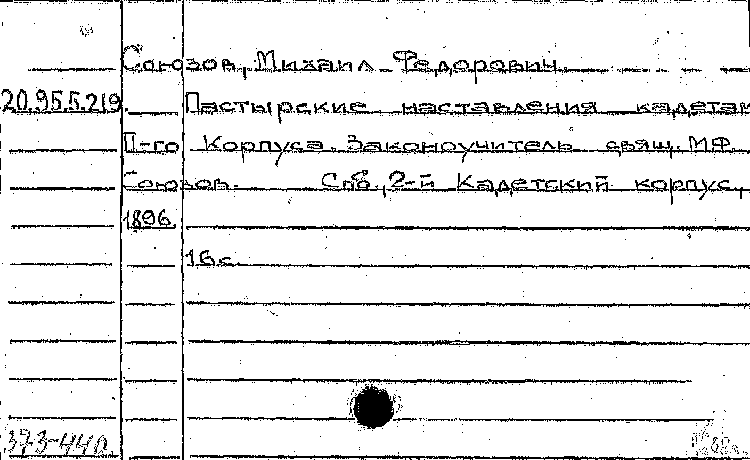 Союзов, Михаил Федорович.
20.95.5.219. Пастырские наставления кадетам
II-го Корпуса. Законоучитель свящ. М.Ф.
Союзов. Спб., 2-й Кадетский корпус,
1896.
16 с.
373-440